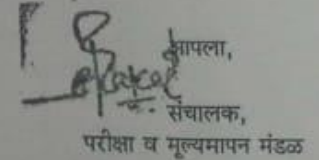 आपला,
संचालक,
परीक्षा व मूल्यमापन मंडळ